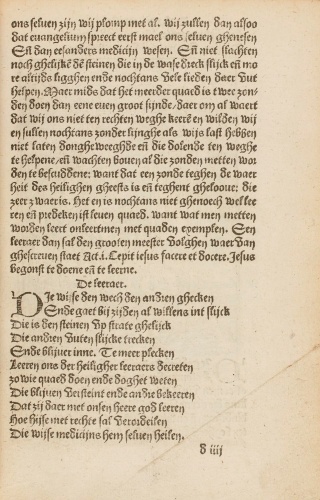 ons seluen zijn wij plomp met al. wij zullen dan alsoo
dat euangelium spreect eerst mael ons seluen ghenesen
Eñ dan een anders medicijn wesen. Eñ niet slachten
noch ghelijcke dē steinen die in de wase dreck slijck eñ mo
re altijds ligghen ende nochtans vele lieden daer vut
helpen. Maer mids dat het meerder quaed is twee zon-
den doen dan eene euen groot sijnde/daer om al waert
dat wij ons niet ten rechten weghe keerē en wilden wij
en sullen nochtans zonder lijnghe als wijs last hebben
niet laten dongheweeghde eñ die dolende ten weghe
te helpene/eñ wachten bouen al die zonden metten wor
den te beschudene: want dat een zonde teghen de waer
heit des heilighen gheests is eñ teghent ghelooue: die
zeer zwaer is. Het en is nochtans niet ghenoech wel lee
ren eñ prediken ist leuen quaed. want wat men metten
worden leert onleertmen met quaden exemplen. Een
leeraer dan sal den grooten meester volghen waer van
ghescreuen staet Act.i. Cepit iesus facere et docere. Jesus
begonst te doene eñ te leerne.
De leeraer.
Die wijse den wech den andren ghecken
Ende gaet bij zijden al willens int slijck
Die is den steinen vp strate ghelijck
Die andren vuten slijcke trecken
Ende blijuer inne. Te meer plecken
Leeren ons der heiligher leeraers decreten
zo wie quaed doen ende doghet weten
Die blijuen versteint ende andre bekeeren
Dat zij daer met onsen heere god leeren
Hoe hijse met rechte sal veroordeilen
Die wijse medicijns hem seluen heilen.
d iiij